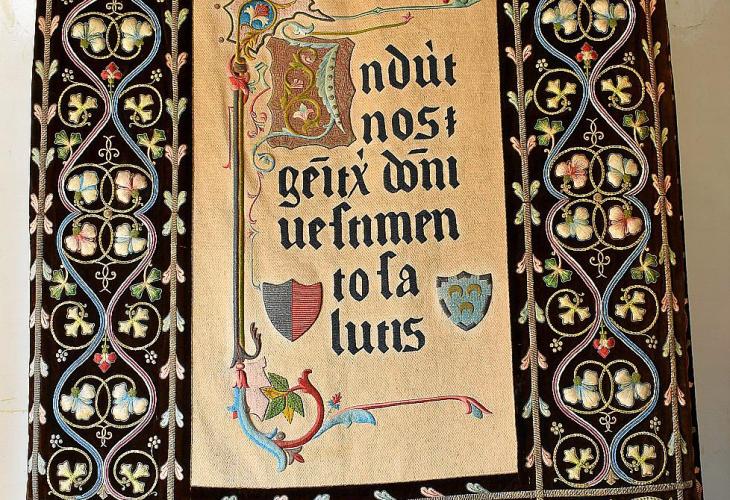 Induit
nos
geñitx̃ dom̃i
vestimen
to sa
lutis